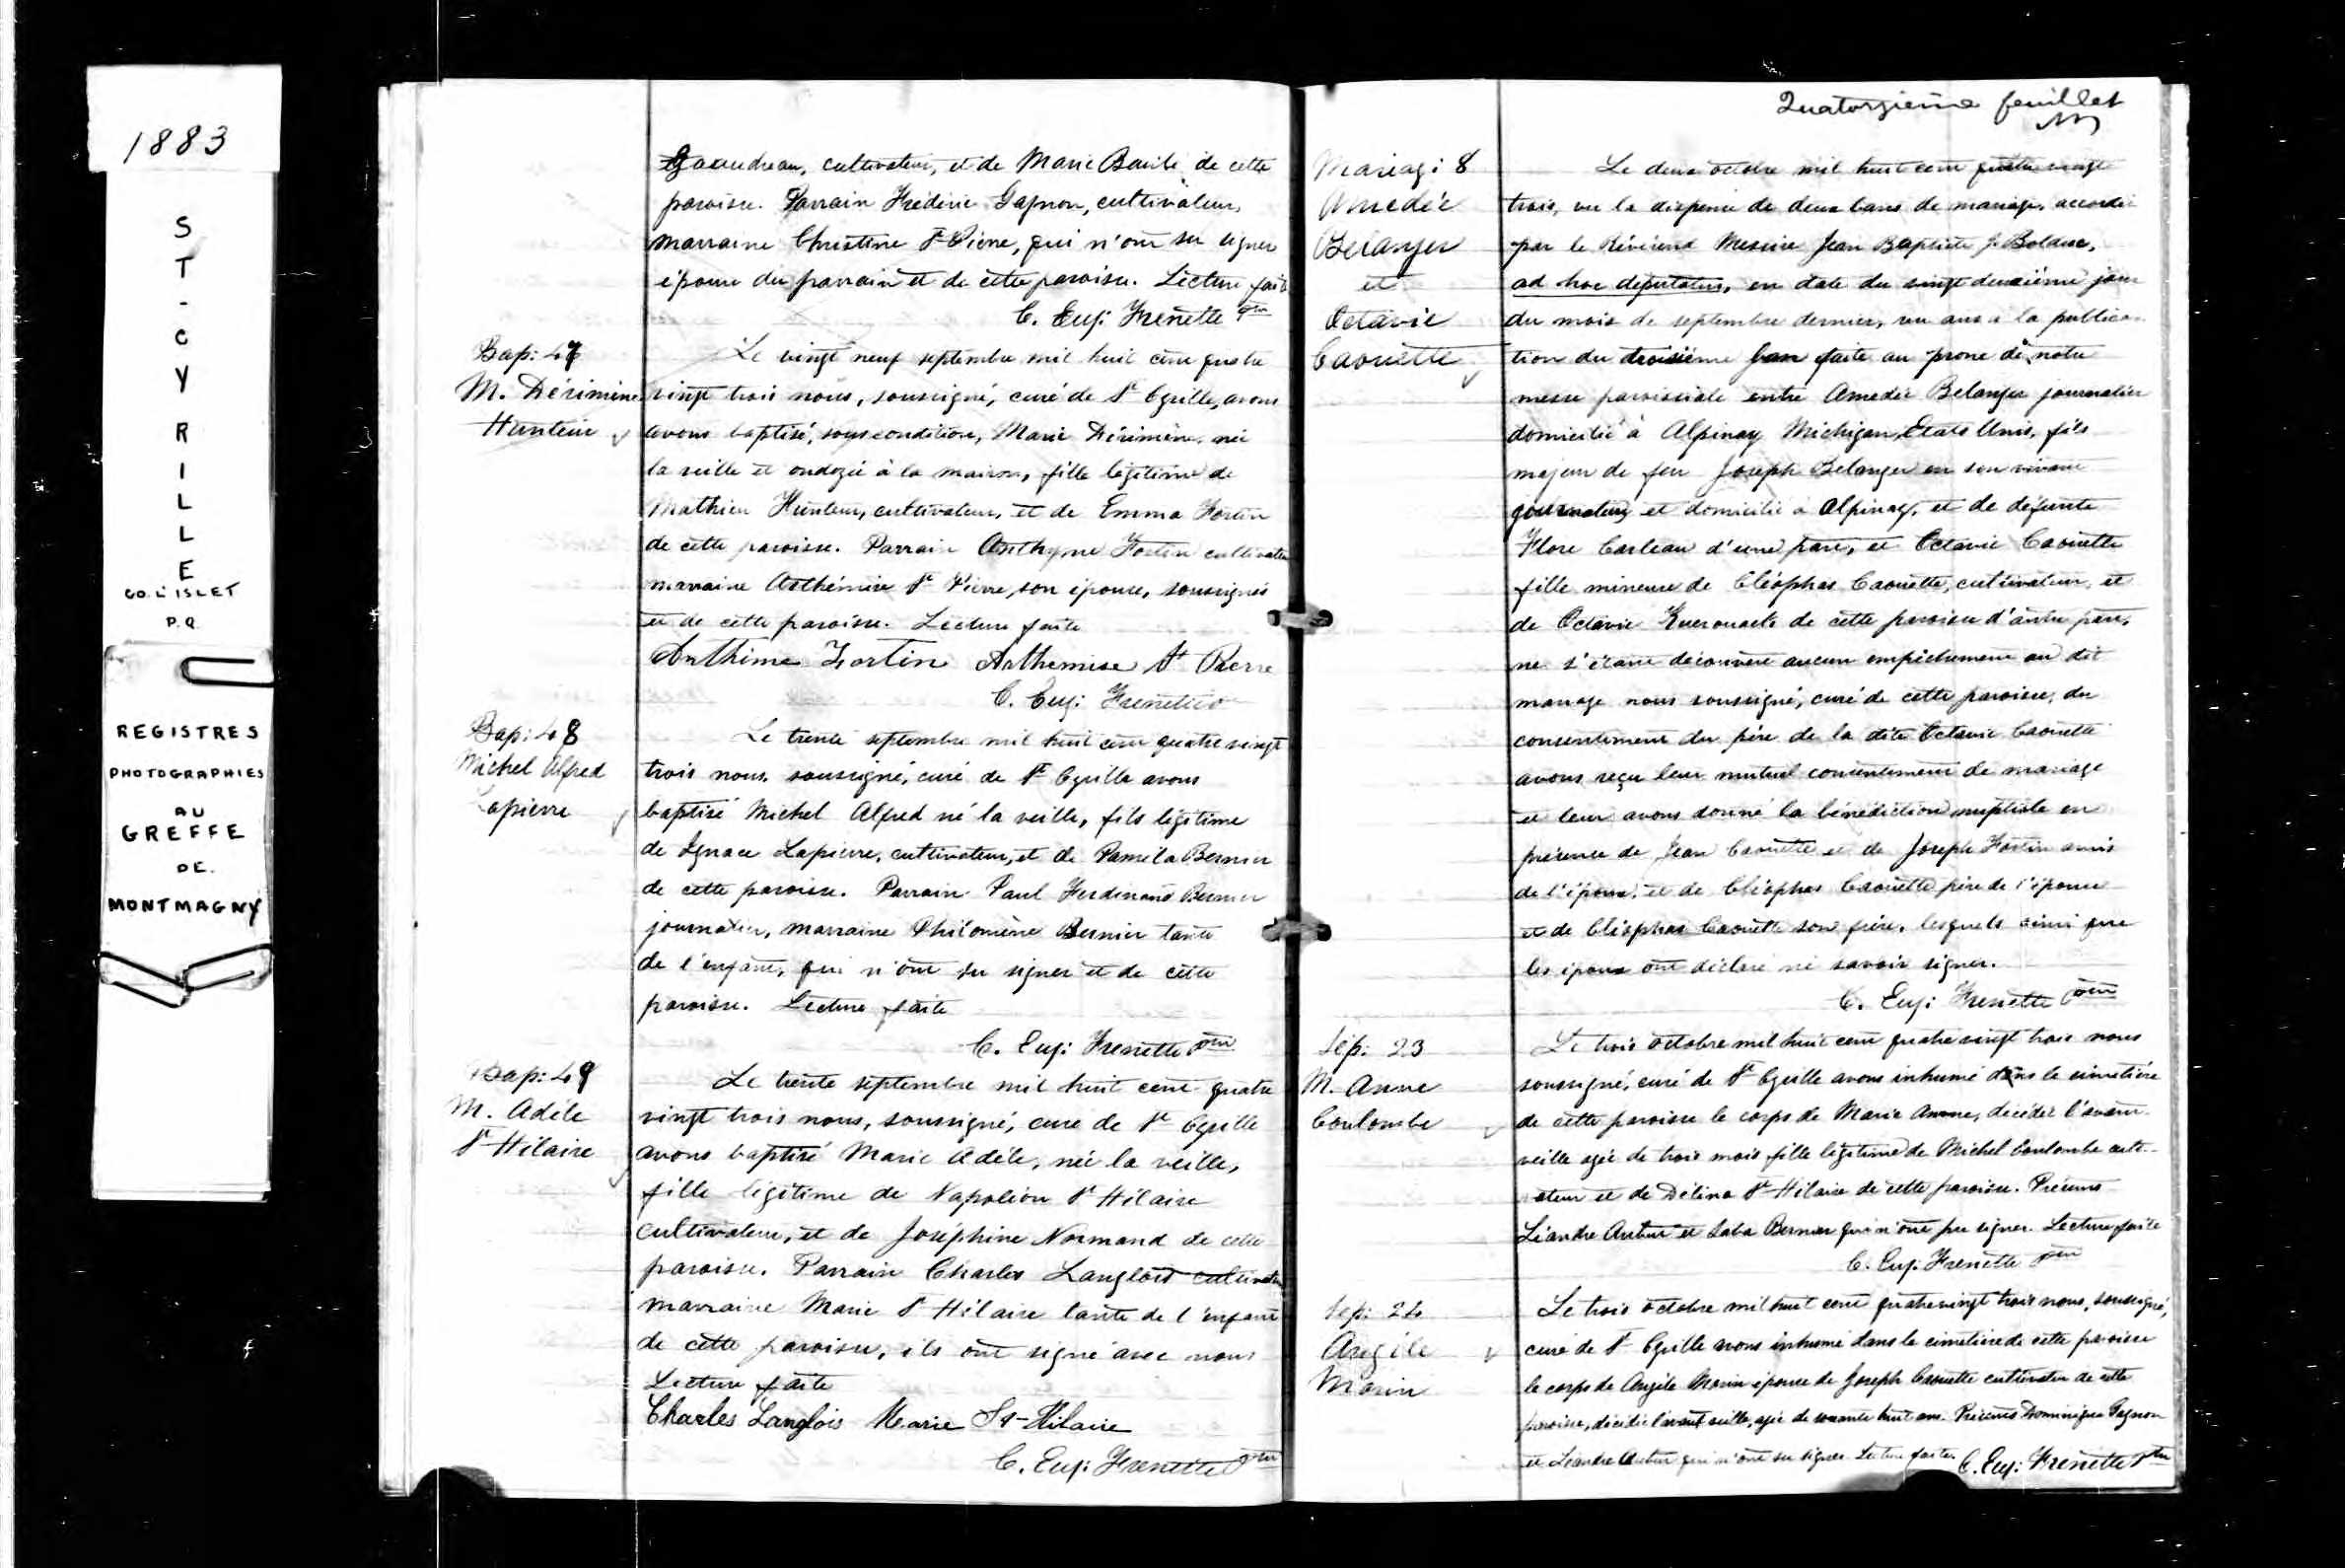 1883
ST-CYRILLE
CO. L'ISLET
P.Q.
REGISTRES
PHOTOGRAPHIES
AU
GREFFE
DE
MONTMAGNY
Gaudreau, cultivateur, et de Marie de cette
paroisse. Parrain Frédéric Gagnon, cultivateur,
marraine Christine St Pierre, qui n'ont su signer
épouse du parrain et de cette paroisse. Lecture faite
C. Eug: Frenette Ptre
Bap: 47
M. Dérimène
Hunteur
Le vingt neuf septembre mil huit cent quatre
vingt trois nous, soussigné, curé de St Cyrille, avons
avons baptisé, sous condition, Marie Dérimène née
la veille et ondoyée à la maison, fille légitime de
Mathieu Hunteur, cultivateur, et de Emma Fortin
de cette paroisse. Parrain Anthyme Fortin cultivateur
marraine Arthémise St Pierre, son épouse, soussignés
et de cette paroisse. Lecture faite
Anthime Fortin Arthemise St Pierre
C. Eug: Frenette
Bap: 48
Michel Alfred
Lapierre
Le trente septembre mil huit cent quatre vingt
trois nous, soussigné, curé de St Cyrille avons
baptisé Michel Alfred né la veille, fils légitime
de Ignace Lapierre, cultivateur, et de Paméla Bernier
de cette paroisse. Parrain Paul Ferdinand Bernier
journalier, marraine Philomène Bernier tante
de l'enfant, qui n'ont su signer et de cette
paroisse. Lecture faite
C. Eug: Frenette Ptre
Bap: 49
M. Adèle
St Hilaire
Le trente septembre mil huit cent quatre
vingt trois nous, soussigné, curé de St Cyrille
avons baptisé Marie Adèle, née la veille,
fille légitime de Napoléon St Hilaire
cultivateur, et de Joséphine Normand de cette
paroisse. Parrain Charles Langlois cultivateur
marraine Marie St Hilaire tante de l'enfant
de cette paroisse, ils ont signé avec nous
Lecture faite
Charles Langlois Marie St-Hilaire
C. Eug: Frenette Ptre
Quatorzième feuillet
Mariage: 8
Amedée
Belanger
et
Octavie
Caouette
Le deux octobre mil huit cent quatre vingt
trois, vu la dispense de deux bans de mariage, accordée
par le Révérend Messire Jean Baptiste Z. Bolduc,
ad hoc deputatus, en date du vingt deuxième jour
du mois de septembre dernier, vu aussi la publica-
tion du troisième ban faite au prone de notre
messe paroissiale entre Amedée Belanger journalier
domicilié à Alpinay Michigan, Etats Unis, fils
majeur de feu Joseph Belanger en son vivant
journalier et domicilié à Alpinay, et de défunte
Flore Carleau d'une part, et Octavie Caouette
fille mineure de Cléophas Caouette, cultivateur, et
de Octavie Kuerouack de cette paroisse d'autre part,
ne s'étant découvert aucun empêchement au dit
mariage nous soussigné, curé de cette paroisse, du
consentement du père de la dite Octavie Caouette
avons reçu leur mutuel consentement de mariage
et leur avons donné la bénédiction nuptiale en
présence de Jean Caouette et de Joseph Fortin amis
de l'époux, et de Cléophas Caouette père de l'épouse
et de Cléophas Caouette son frère, lesquels ainsi que
les époux ont déclaré ne savoir signer.
C. Eug: Frenette Ptre
Sép: 23
M. Anne
Coulombe
Le trois octobre mil huit cent quatre vingt trois nous
soussigné, curé de St Cyrille avons inhumé dans le cimetière
de cette paroisse le corps de Marie Anne, décédée l'avant-
veille agée de trois mois fille légitime de Michel Coulombe culti-
ateur et de Délina St Hilaire de cette paroisse. Présents
Léandre et Bernier qui n'ont pu signer. Lecture faite
C. Eug: Frenette Ptre
Sép: 24
Angèle
Morin
Le trois octobre mil huit cent quatre vingt trois nous, soussigné,
curé de St Cyrille avons inhumé dans le cimetière de cette paroisse
le corps de Angèle Morin épouse de Joseph Caouette cultivateur de cette
paroisse, décédée l'avant veille, agée de soixante huit ans. Présents Dominique Gagnon
et Léandre qui n'ont su signer. Lecture faite. C. Eug: Frenette Ptre